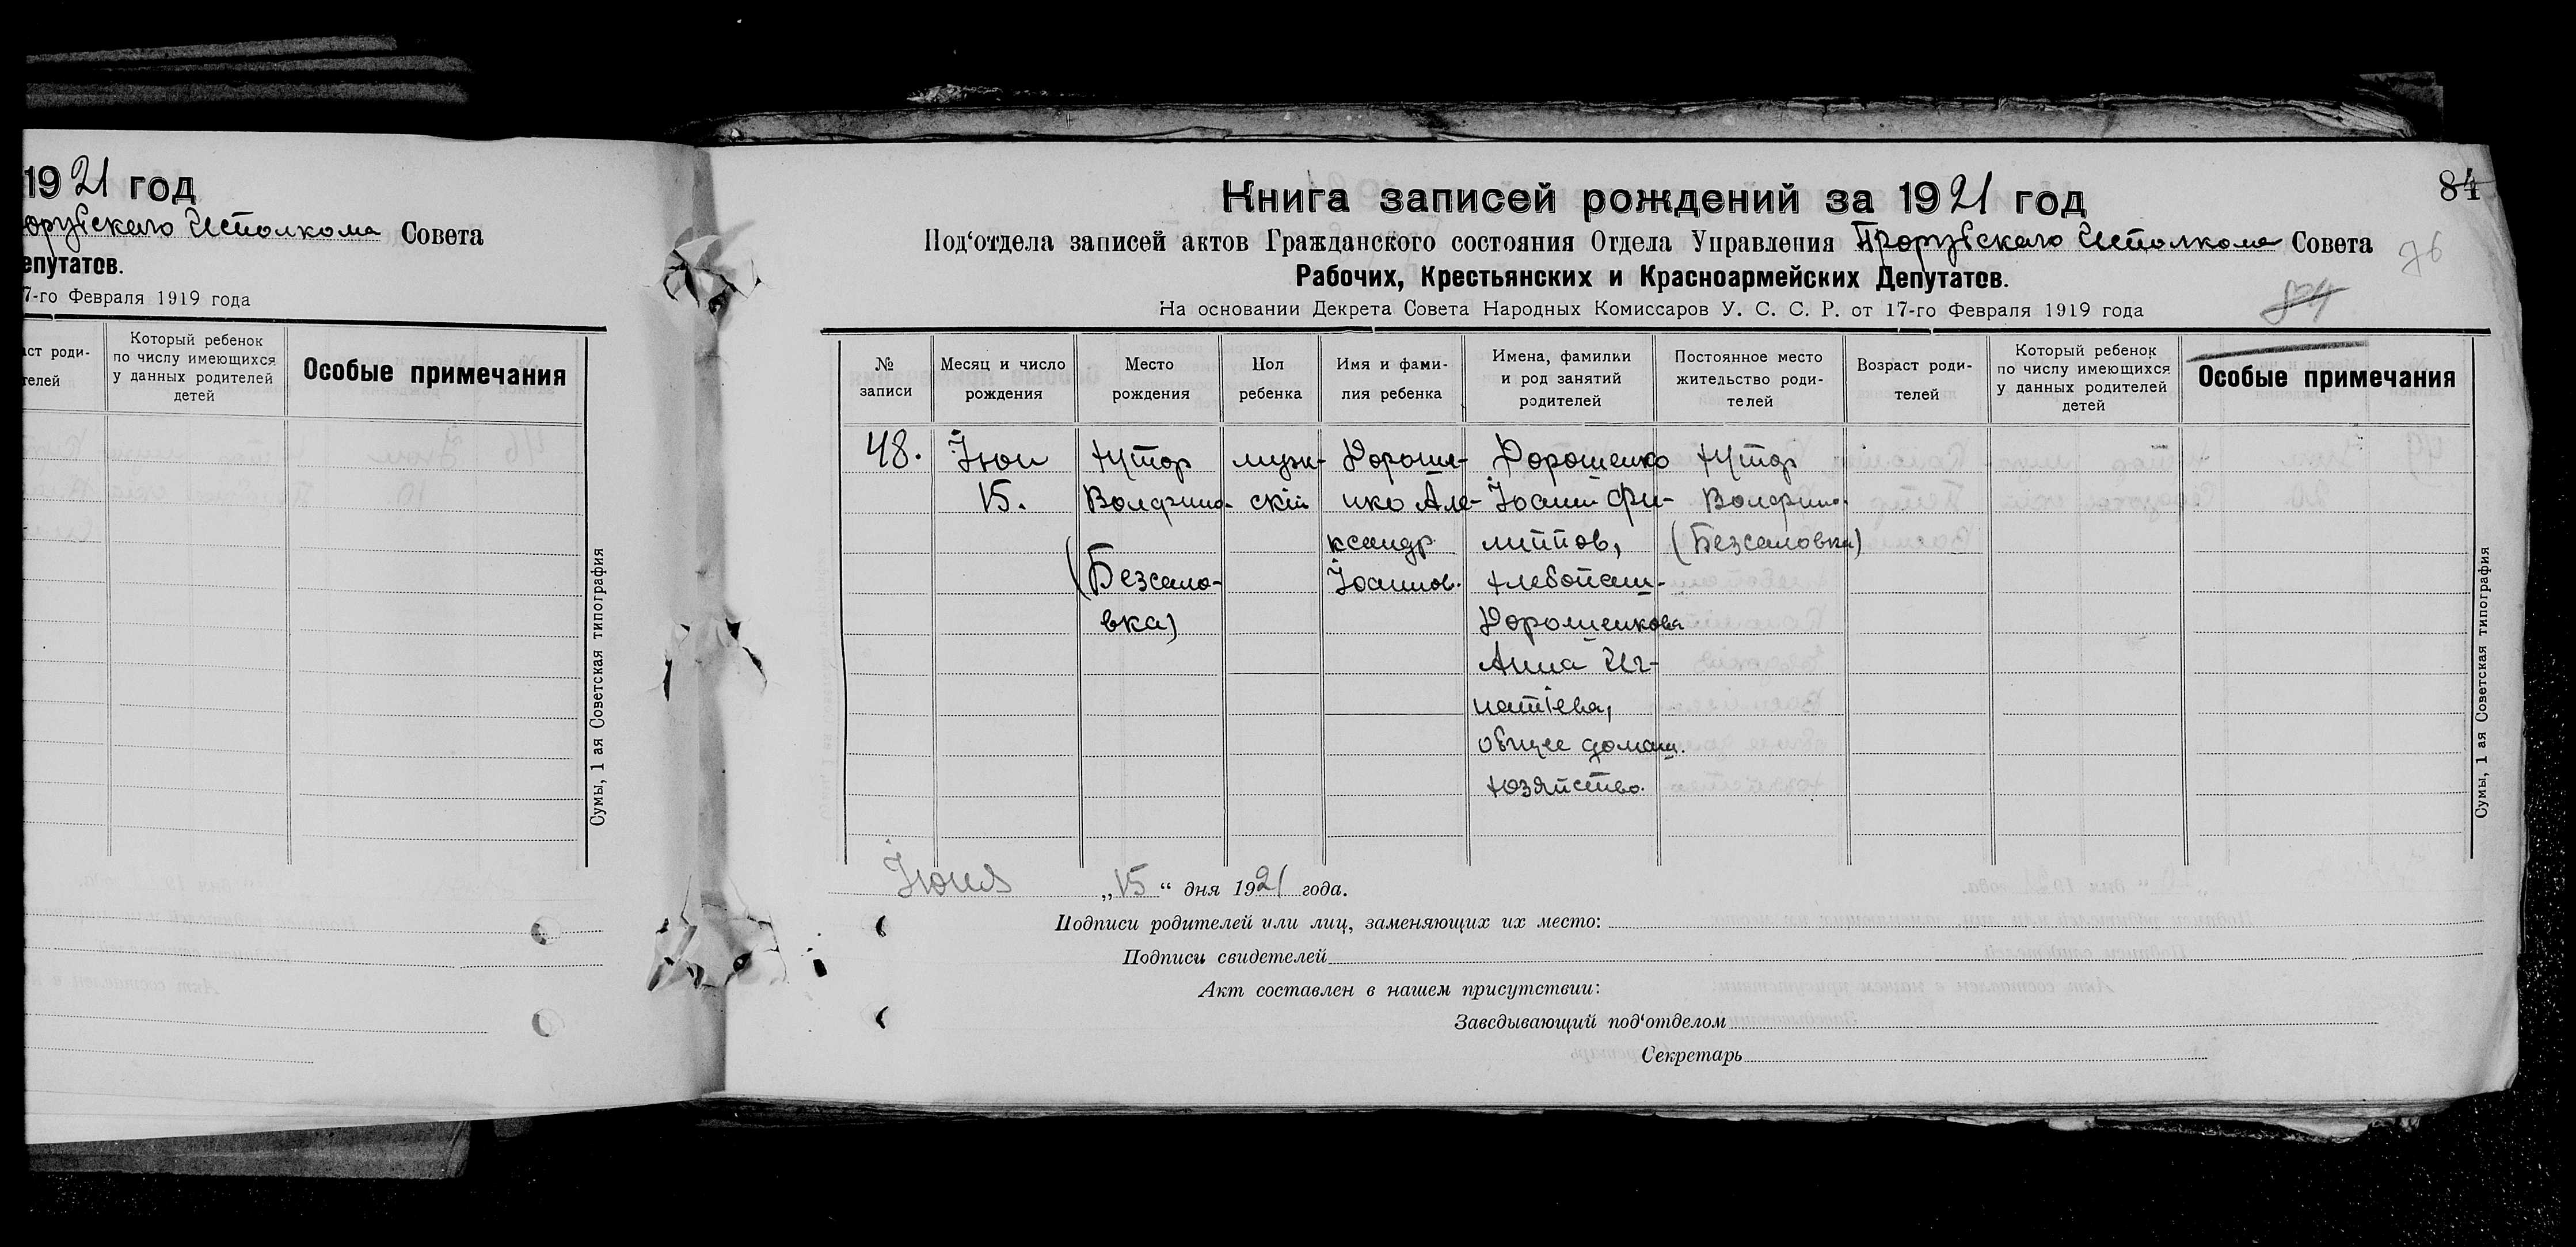 1921 год
Исполкома Совета
епутатов.
7-го Февраля 1919 года
аст роди-
телей
Который ребенок
по числу имеющихся
у данных родителей
детей
Особые примечания
Сумы, 1 ая Советская типография
84
Книга записей рождений за 1921 год
Под‘отдела записей актов Гражданского состояния Отдела Управления Прорубскаго Исполкома Совета
76
Рабочих, Крестьянских и Красноармейских Депутатов.
На основании Декрета Совета Народных Комиссаров У. С. С. Р. от 17-го Февраля 1919 года
№
записи
Месяц и число
рождения
Место
рождения
Пол
ребенка
Имя и фами-
лия ребенка
Имена, фамилии
и род занятий
родителей
Постоянное место
жительство роди-
телей
Возраст роди-
телей
Который ребенок
по числу имеющихся
у данных родителей
детей
Особые примечания
48.
Іюн
15.
хутор
(Безсало-
вка)
муж-
скій
Дороше-
нко Але-
ксандр
Іоаннов.
Дорошенко
Іоанн Фи-
липпов,
хлебопаш-
Дорошенкова
Анна Иг-
натіева,
общее домаш.
хозяйство.
хутор
(Безсаловка)
Сумы, 1 ая Советская типография
Іюня „15“ дня 1921 года.
Подписи родителей или лиц, заменяющих их место:
Подписи свидетелей
Акт составлен в нашем присутствии:
Заведывающий под‘отделом
Секретарь